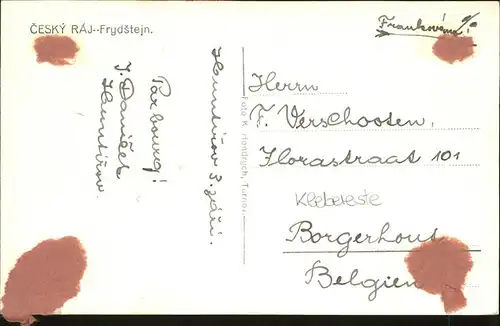 ČESKÝ RÁJ--Frydštejn.
Frankováno!
Huntířov 3. září.
J. Daníček
Huntířov.
Foto K. Vondrych, Turnov.
Herrn
F. Verschooten,
Florastraat 101
Klebereste
Borgerhout
Belgien